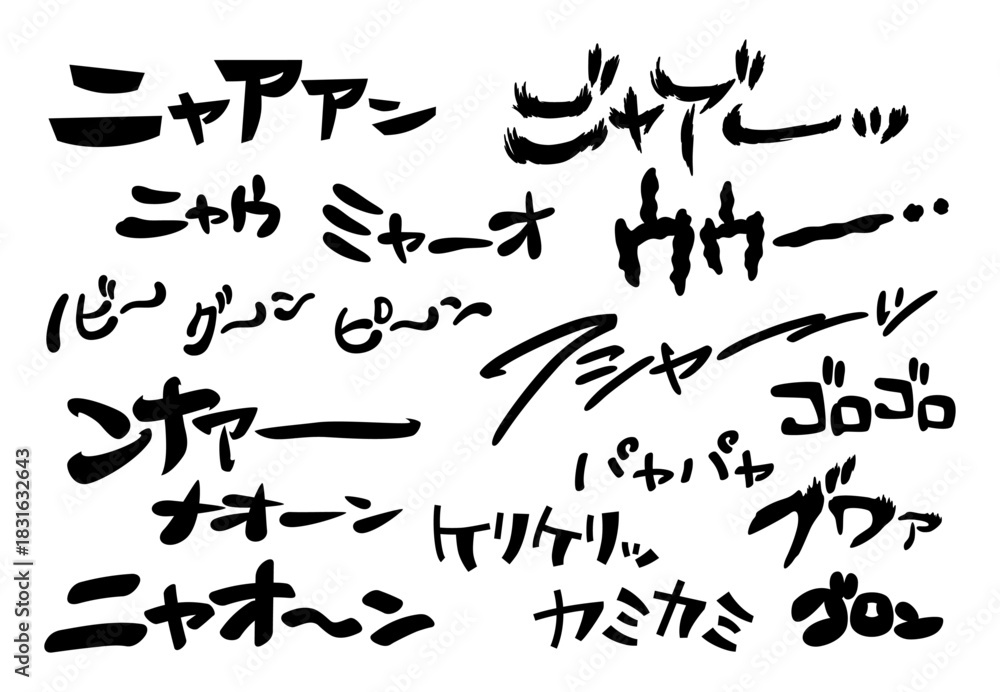 ニャアアン
ニャウ
ミャーオ
グ〜ン
ピ〜ン
ンナァー
ナオーン
ニャオ〜ン
ウウー‥
フシャーッ
ゴロゴロ
パヤパヤ
ケリケリッ
ブワァ
カミカミ
ゴロン
Adobe Stock | #1831632643